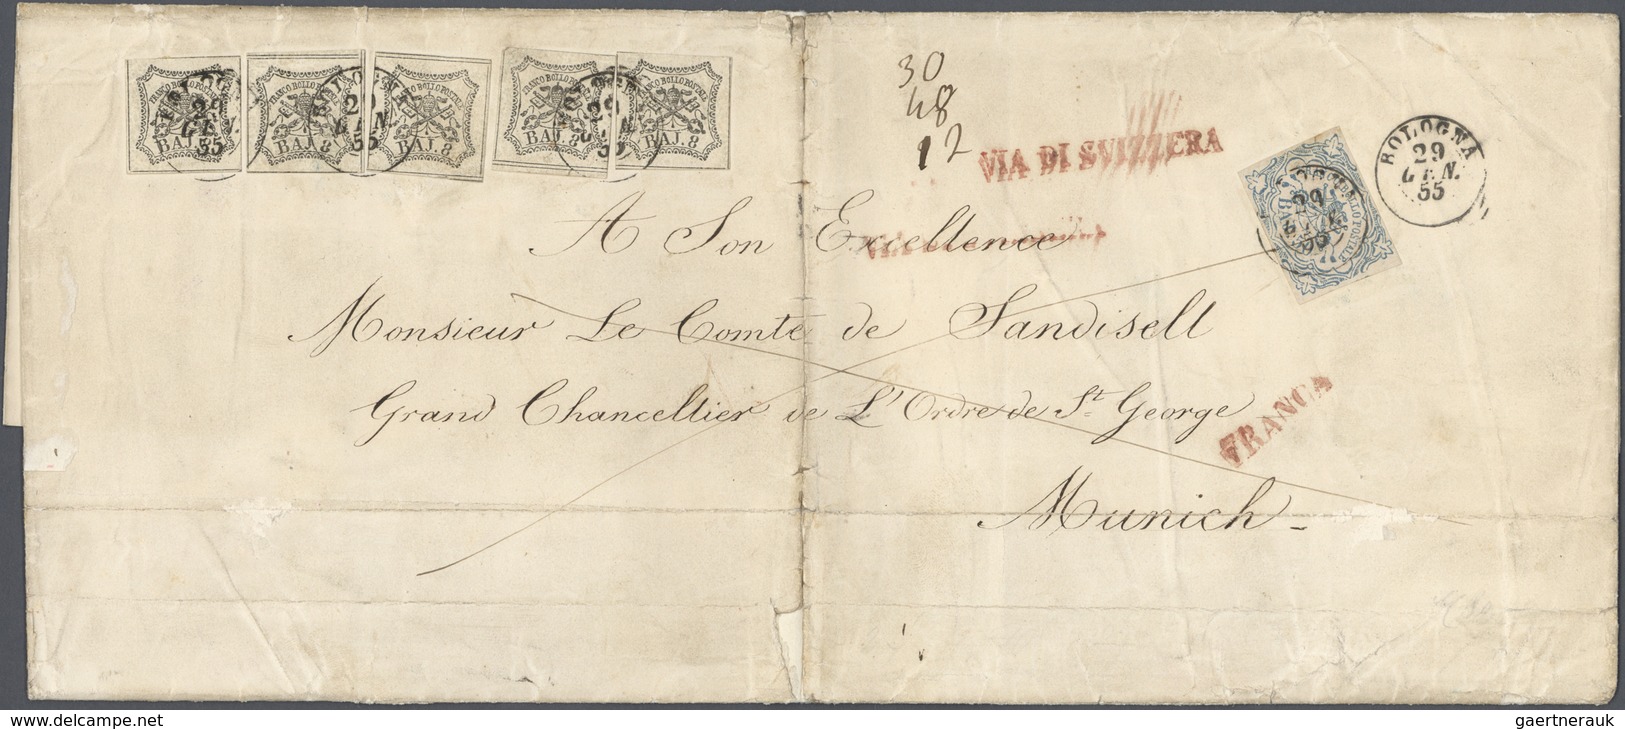 FRANCO BOLLO POSTALE
BAJ. 8
FRANCO BOLLO POSTALE
BAJ. 8
FRANCO BOLLO POSTALE
BAJ. 8
FRANCO BOLLO POSTALE
BAJ. 8
FRANCO BOLLO POSTALE
BAJ. 8
29
GEN.
55
30
48
12
VIA DI SVIZZERA
BOLOGNA
29
GEN.
55
BOLLO POSTALE
A Son Excellence
Monsieur Le Comte de Sandisell
Grand Chancellier de L'Ordre de St George
FRANCA
Munich -
www.delcampe.net
gaertnerauk